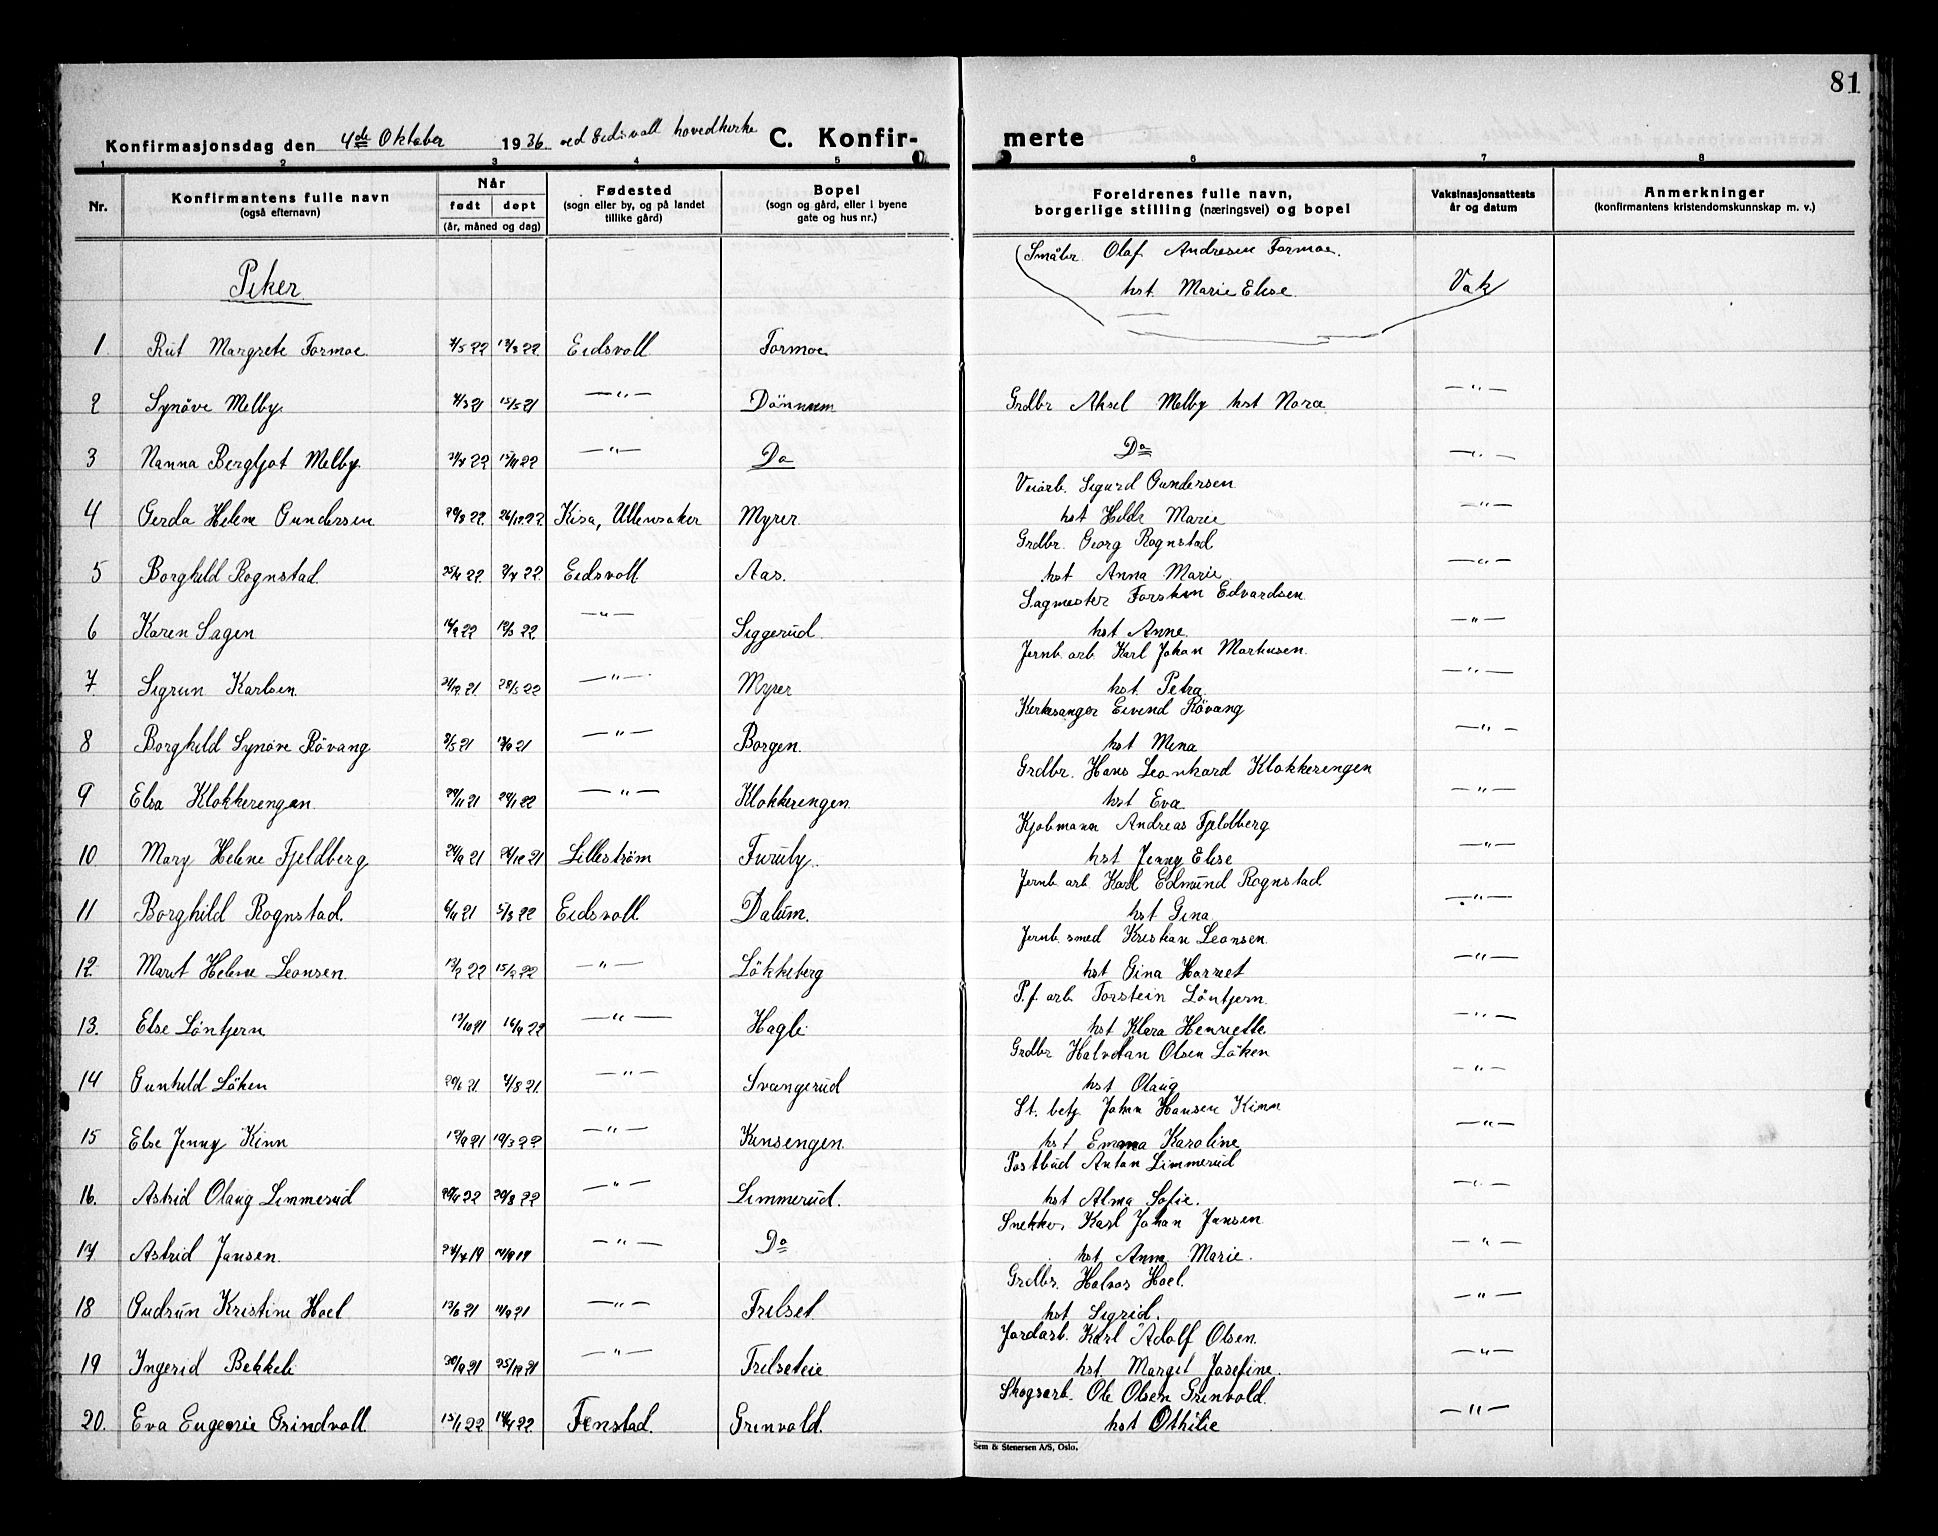 81
Konfirmasjonsdag den 4de Oktober 1936 ved Eidsvoll hovedkirke C. Konfir- merte
1 2 3 4 5 6 7 8
Nr. Konfirmantens fulle navn (også efternavn) Når født døpt (år, måned og dag) Fødested (sogn eller by, og på landet tillike gård) Bopel (sogn og gård, eller i byene gate og hus nr.) Foreldrenes fulle navn, borgerlige stilling (næringsvei) og bopel Vaksinasjonsattests år og datum Anmerkninger (konfirmantens kristendomskunnskap m. v.)
Piker
Småbr. Olaf Andresen Formoe.
hst. Marie Elise Vak
1 Rut Margrete Formoe 22 22 Eidsvoll Formoe
2 Synöve Melby 4/3 21 15/5 21 —"— Dönnum Grdbr Aksel Melby hst Nora —"—
3 Nanna Bergljot Melby 22 22 —"— Do Do —"—
Veiarb. Sigurd Gundersen
4 Gerda Helene Gundersen 22 26/12 22 Kisa, Ullensaker Myrer hst Hilda Marie —"—
Grdbr. Georg Rognstad
5 Borghild Rognstad 22 22 Eidsvoll Aas. hst Anna Marie —"—
Sagmester Torstein Edvardsen
6 Karen Sagen 22 22 —"— Siggerud. hst Anne. —"—
Jernb. arb. Karl Johan Markusen.
7 Sigrun Karlsen 21 28/5 22 —"— Myrer hst. Petra. —"—
Kirkesanger Eivind Rövang
8 Borghild Synöve Rövang 21 21 —"— Borgen. hst Mina —"—
Grdbr. Hans Leonhard Klokkerengen
9 Elsa Klokkerengen. 29/11 21 29/1 22 —"— Klokkerengen. hst Eva —"—
Kjøbmann Andreas Fjeldberg
10 Mary Helene Fjeldberg 24/9 21 26/12 21 Lilleström Furuly. hst Jenny Elise —"—
Jernb arb. Karl Edmund Rognstad
11 Borghild Rognstad. 6/11 21 5/3 22 Eidsvoll Dalum. hst Gina —"—
Jernb. smed Kristian Leonsen.
12. Marit Helene Leonsen. 22 22 —"— Lökkeberg hst Gina Harriet —"—
P.f. arb. Torstein Löntjern.
13. Else Löntjern 13/10 21 16/4 22 —"— Hagli hst Klara Henriette —"—
Grdbr Halvdan Olsen Löken
14 Gunhild Löken 21 21 —"— Svangerud hst Olaug —"—
St. betj. Johan Hansen Kinn
15 Else Jenny Kinn 21 19/3 22 —"— Kinsengen. hst Emma Karoline —"—
Postbud Anton Limmerud
16. Astrid Olaug Limmerud 22 20/8 22 —"— Limmerud. hst Alma Sofie. —"—
Snekker Karl Johan Jansen
17 Astrid Jansen. 19 19 —"— Do hst. Anna Marie. —"—
Grdbr. Halvor Hoel.
18 Gudrun Kristine Hoel 21 21 —"— Frilset. hst Sigrid. —"—
Jordarb. Karl Adolf Olsen.
19 Ingerid Bekkeli 20/9 21 25/12 21 —"— Frilseteie hst. Margit Josefine. —"—
Skogsarb. Ole Olsen Grinvold.
20. Eva Eugenie Grindvoll. 15/1 22 22 Fenstad. Grinvold. hst Othilie —"—
Sem & Stenersen A/S, Oslo.